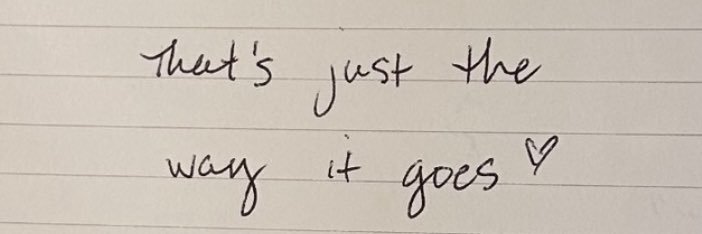 That's just the
way it goes ♡